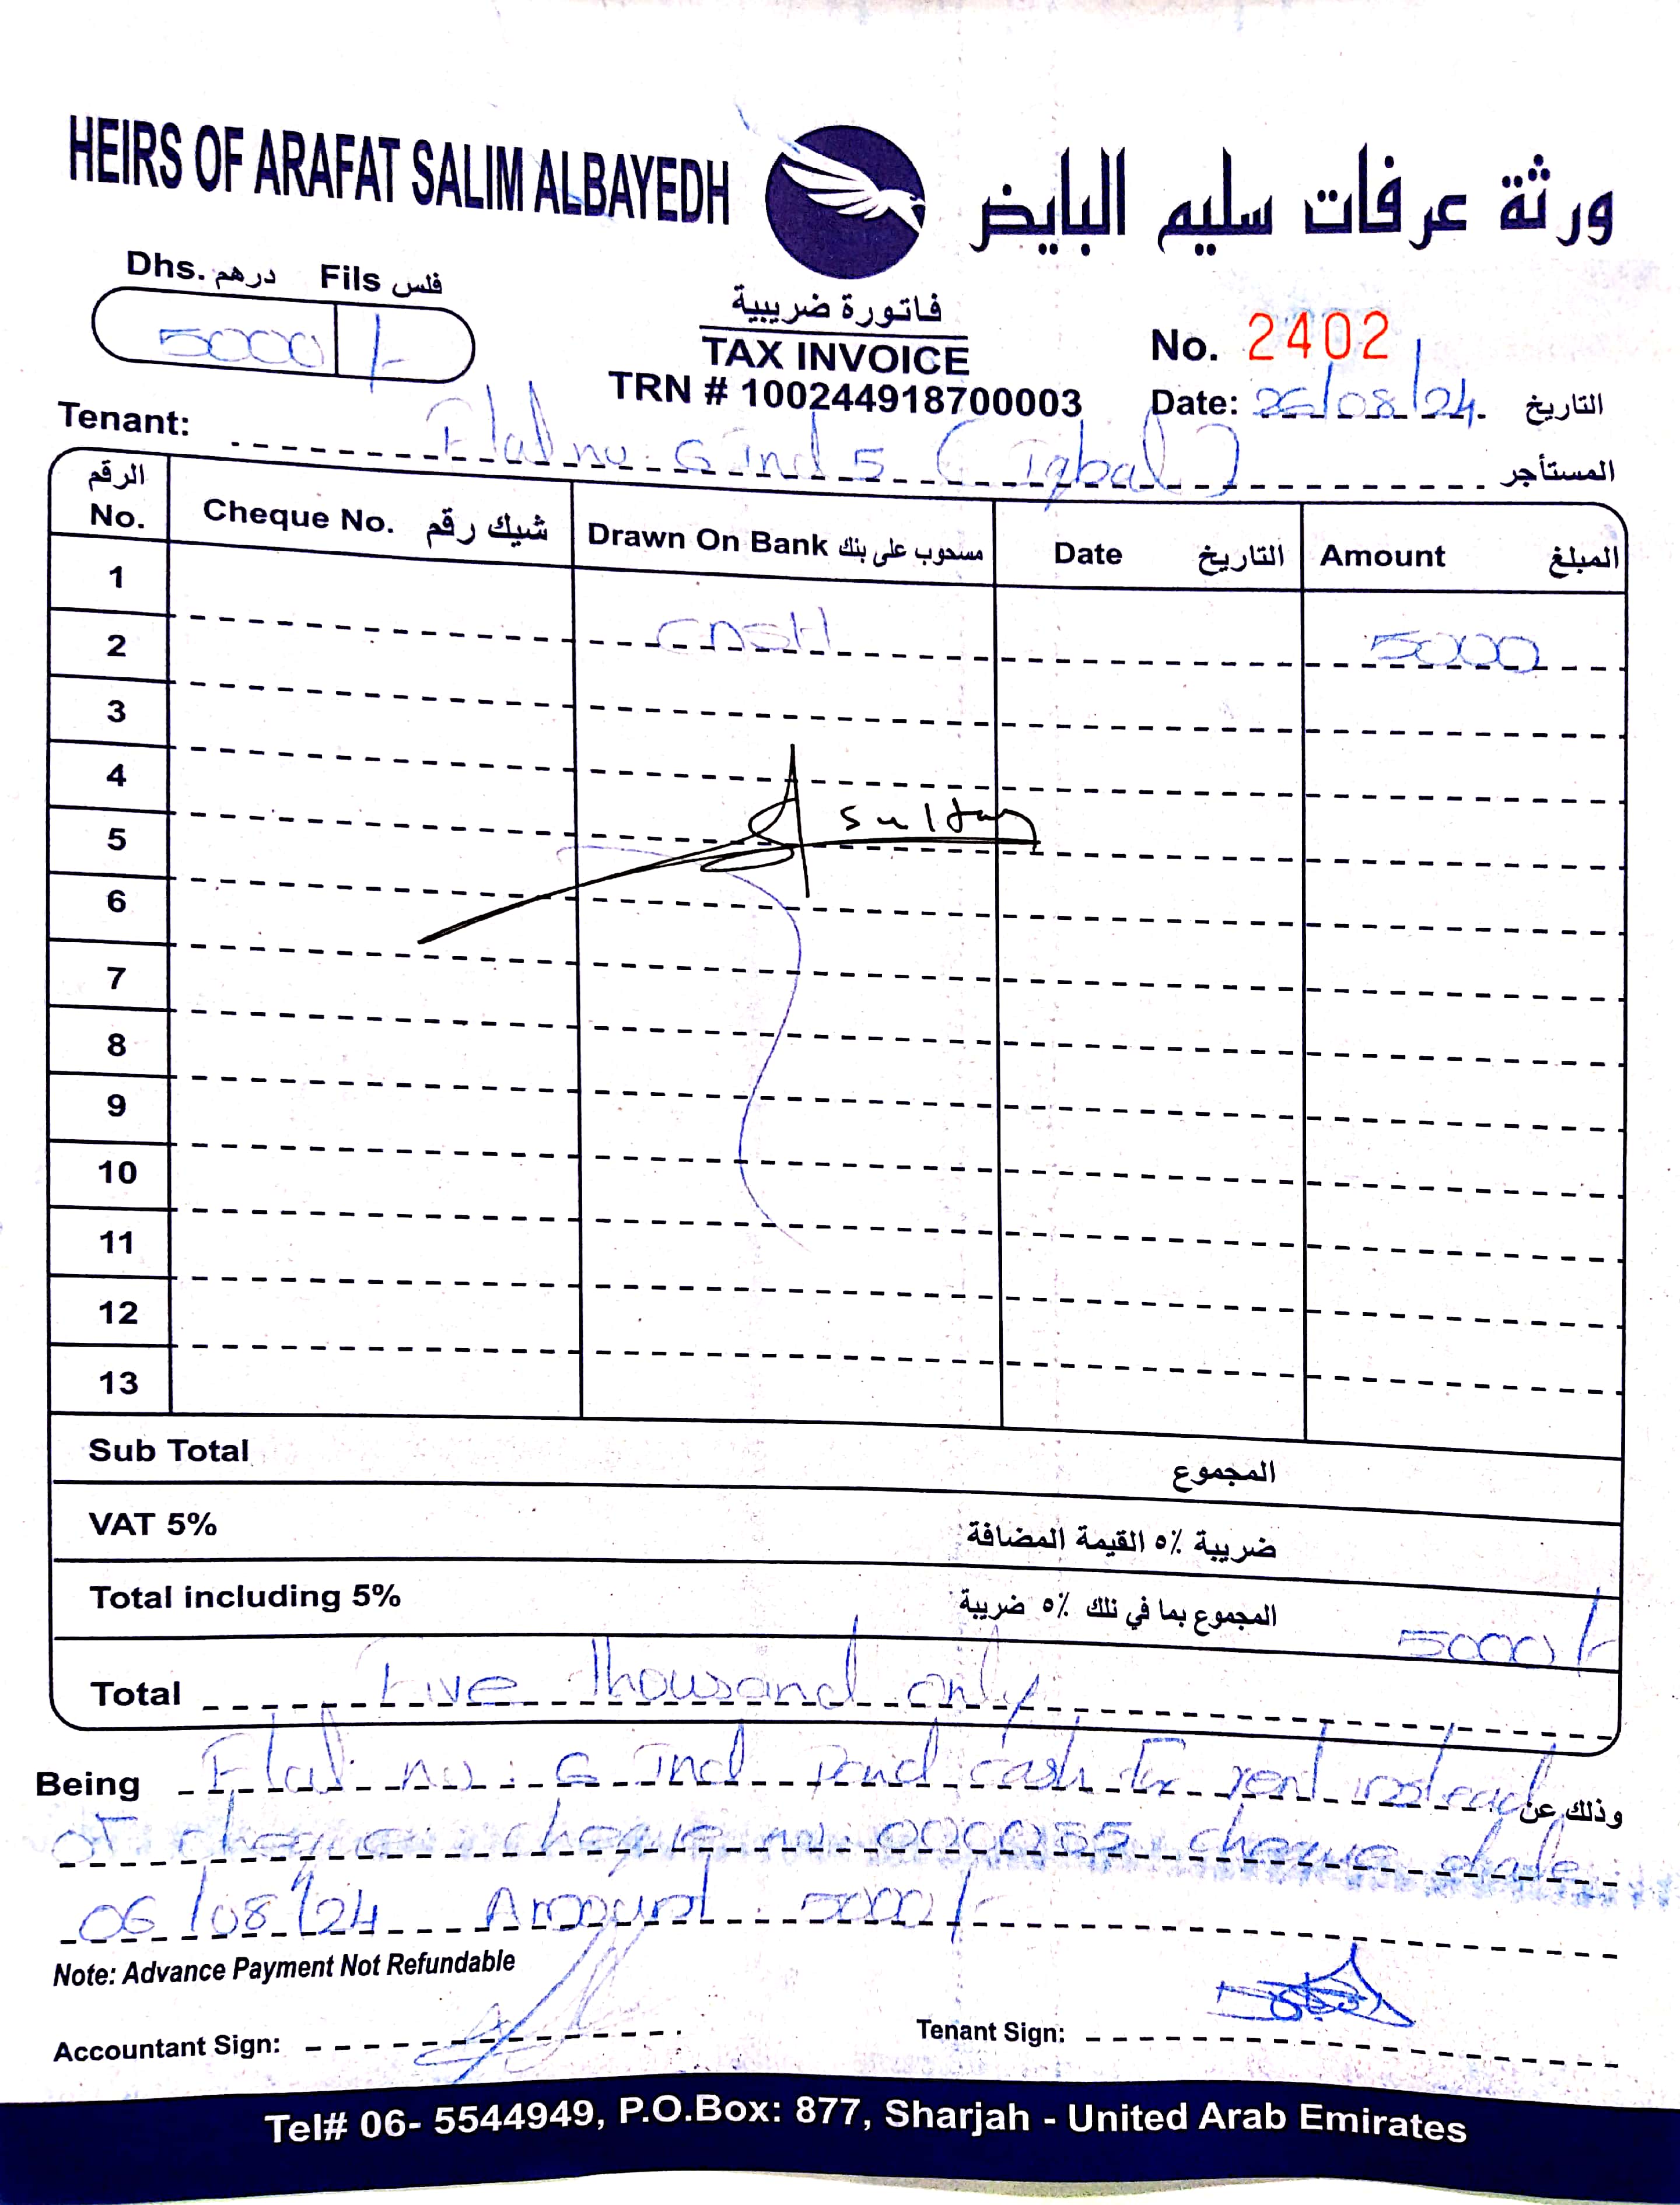 HEIRS OF ARAFAT SALIM ALBAYEDH
ورثة عرفات سليم البايض
Dhs. درهم Fils فلس
5000 /-
فاتورة ضريبية
TAX INVOICE
TRN # 100244918700003
No. 2402
Date: 26/08/24 التاريخ
Tenant: Flat no: G Ind 5 ( Iqbal ) المستأجر
الرقم No. Cheque No. شيك رقم Drawn On Bank مسحوب على بنك Date التاريخ Amount المبلغ
1
2 CASH 5000
3
4
5 Sultan
6
7
8
9
10
11
12
13
Sub Total المجموع
VAT 5% ضريبة ٥٪ القيمة المضافة
Total including 5% المجموع بما في ذلك ٥٪ ضريبة 5000/-
Total Five thousand only
Being Flat no: G Ind Paid cash for rent instead وذلك عن
of cheque cheque no: 000055 cheque date
06/08/24 Amount 5000/-
Note: Advance Payment Not Refundable
Accountant Sign: Tenant Sign:
Tel# 06- 5544949, P.O.Box: 877, Sharjah - United Arab Emirates